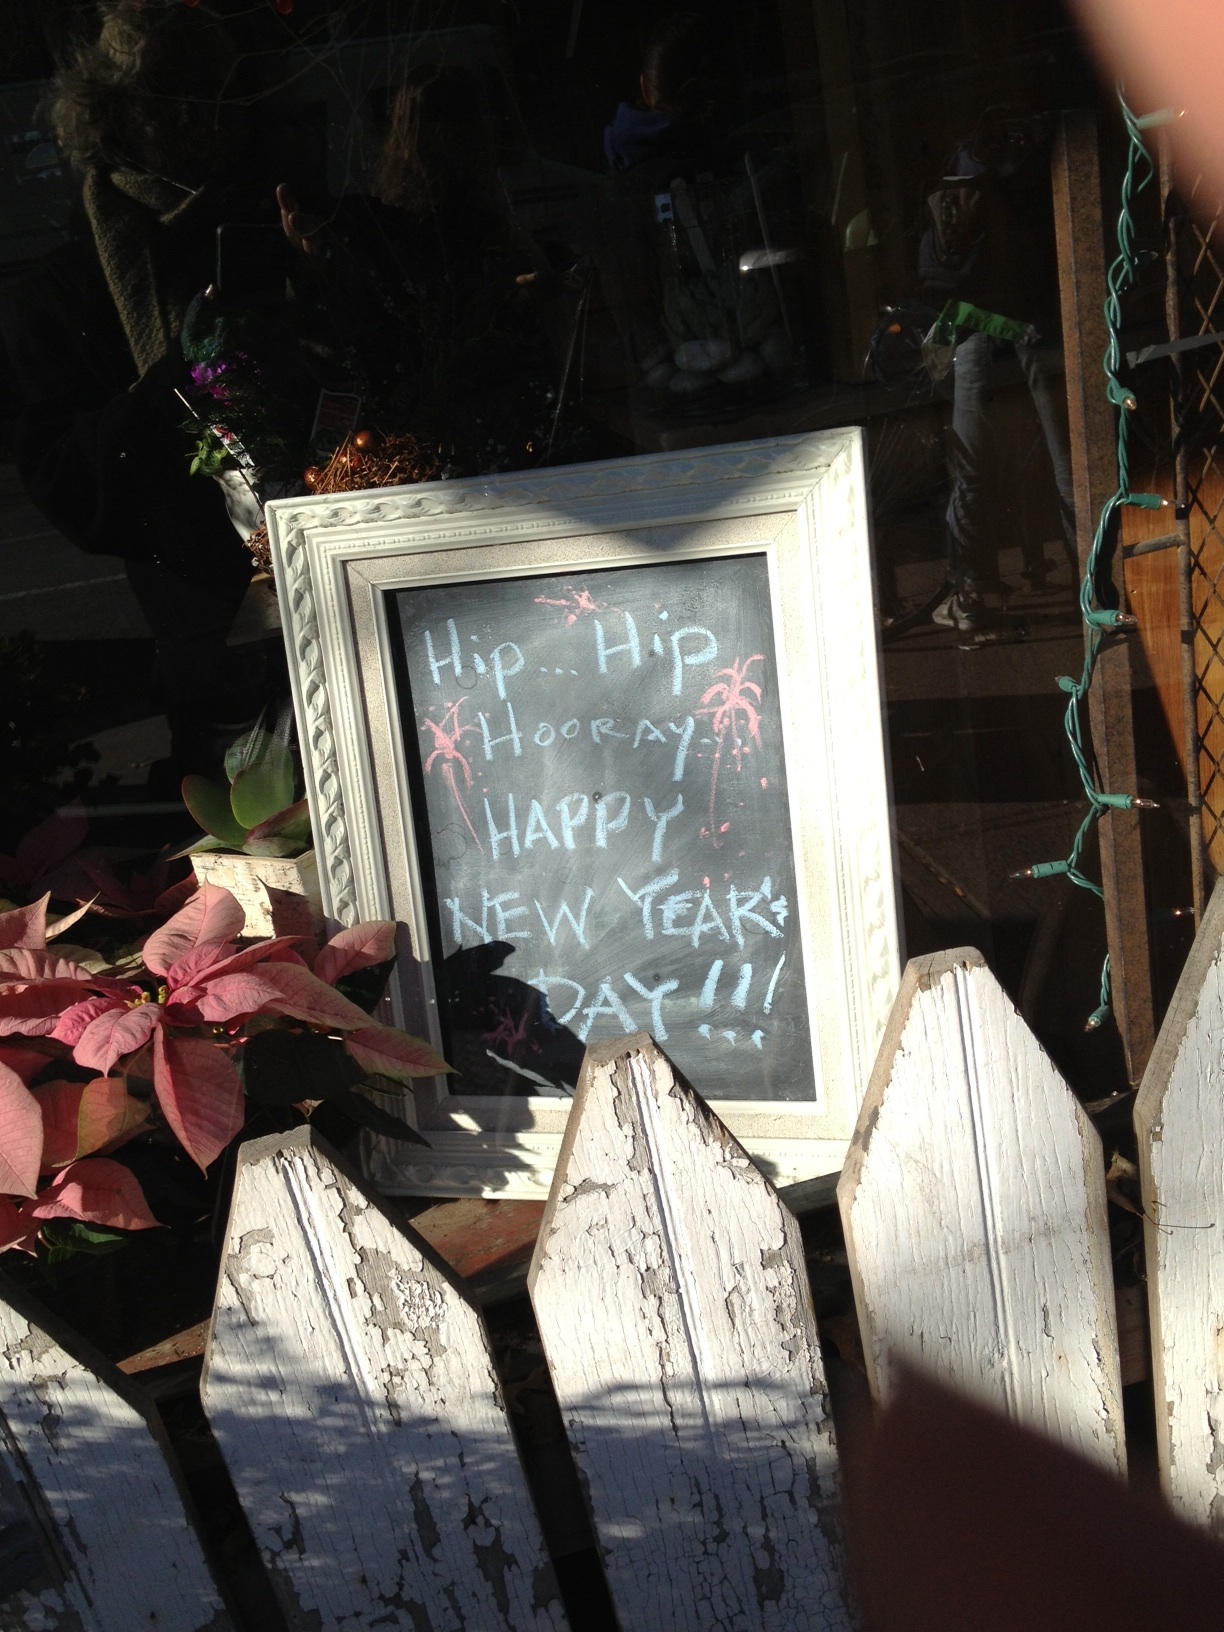 Hip... Hip
HOORAY...
HAPPY
NEW YEAR'S
DAY!!!